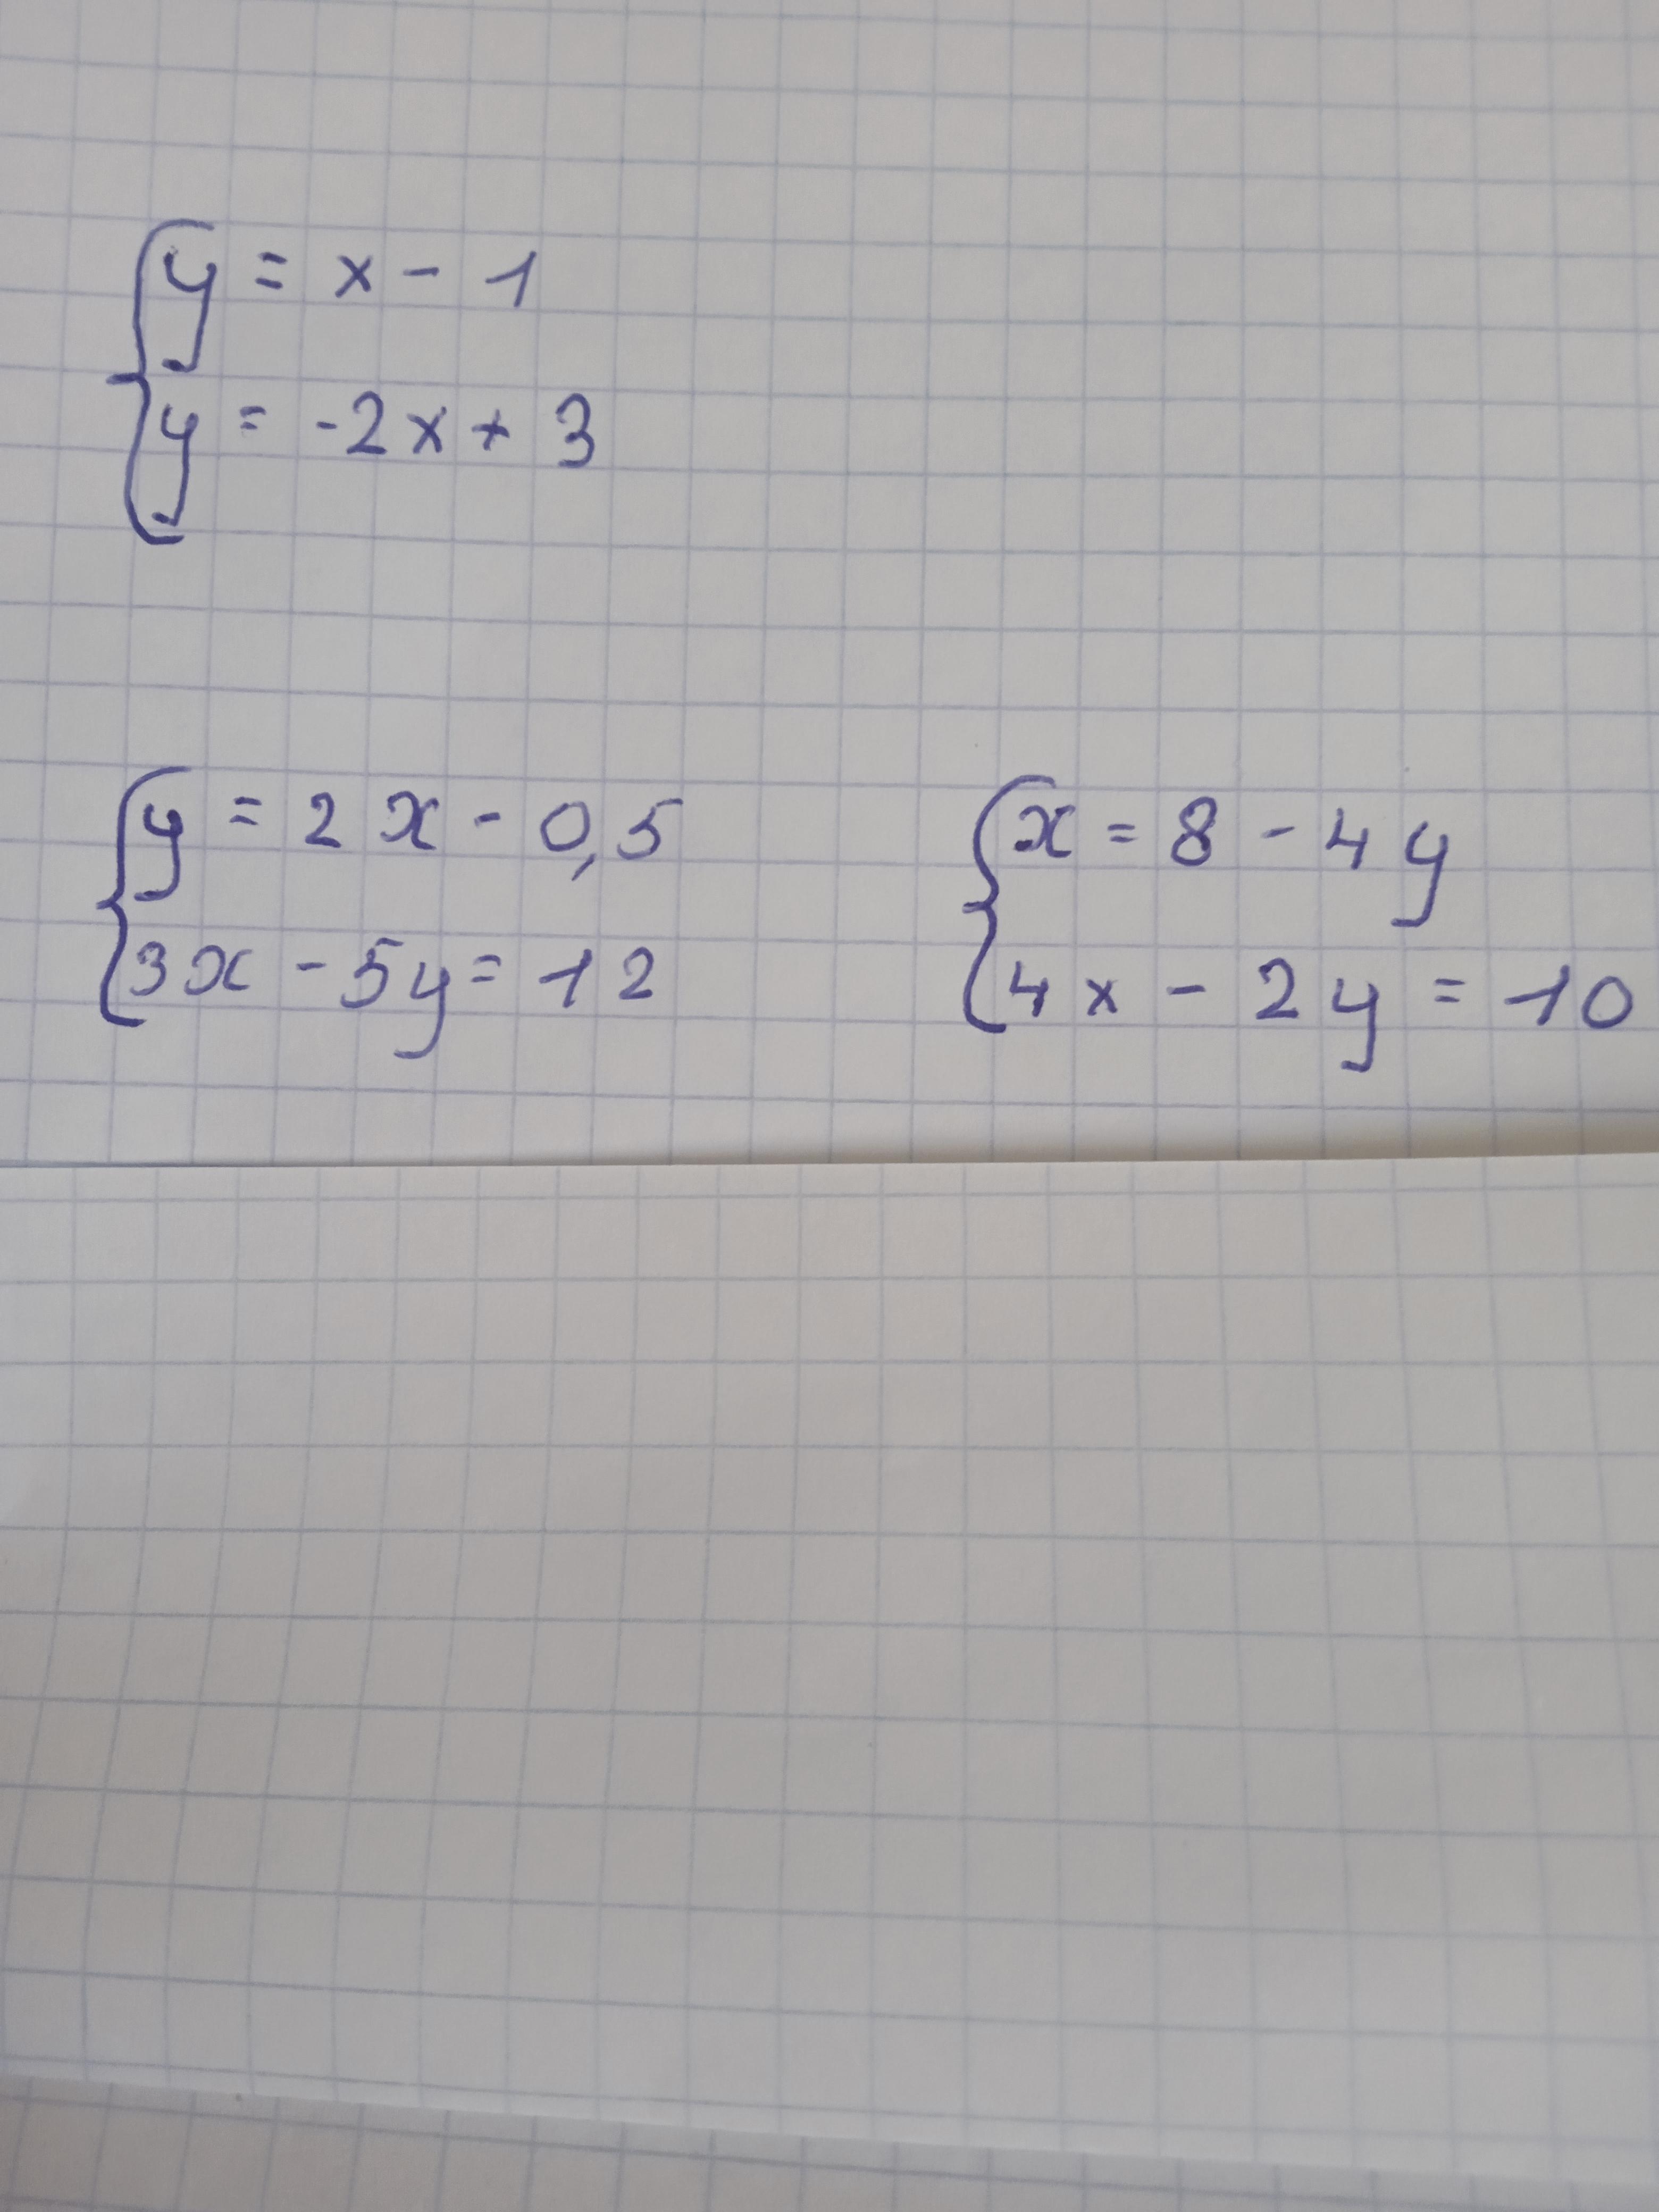 y = x - 1
y = -2x + 3
y = 2x - 0,5
3x - 5y = 12
x = 8 - 4y
4x - 2y = 10